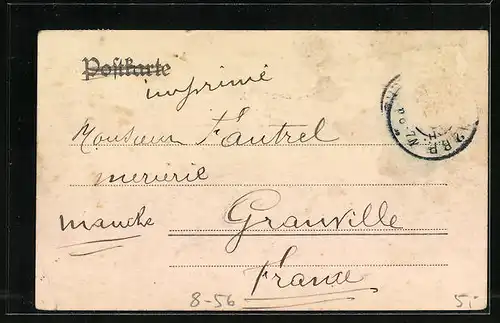 Postkarte
imprimé
Monsieur Fautrel
mercerie
Manche Granville
France
8-56 5,-